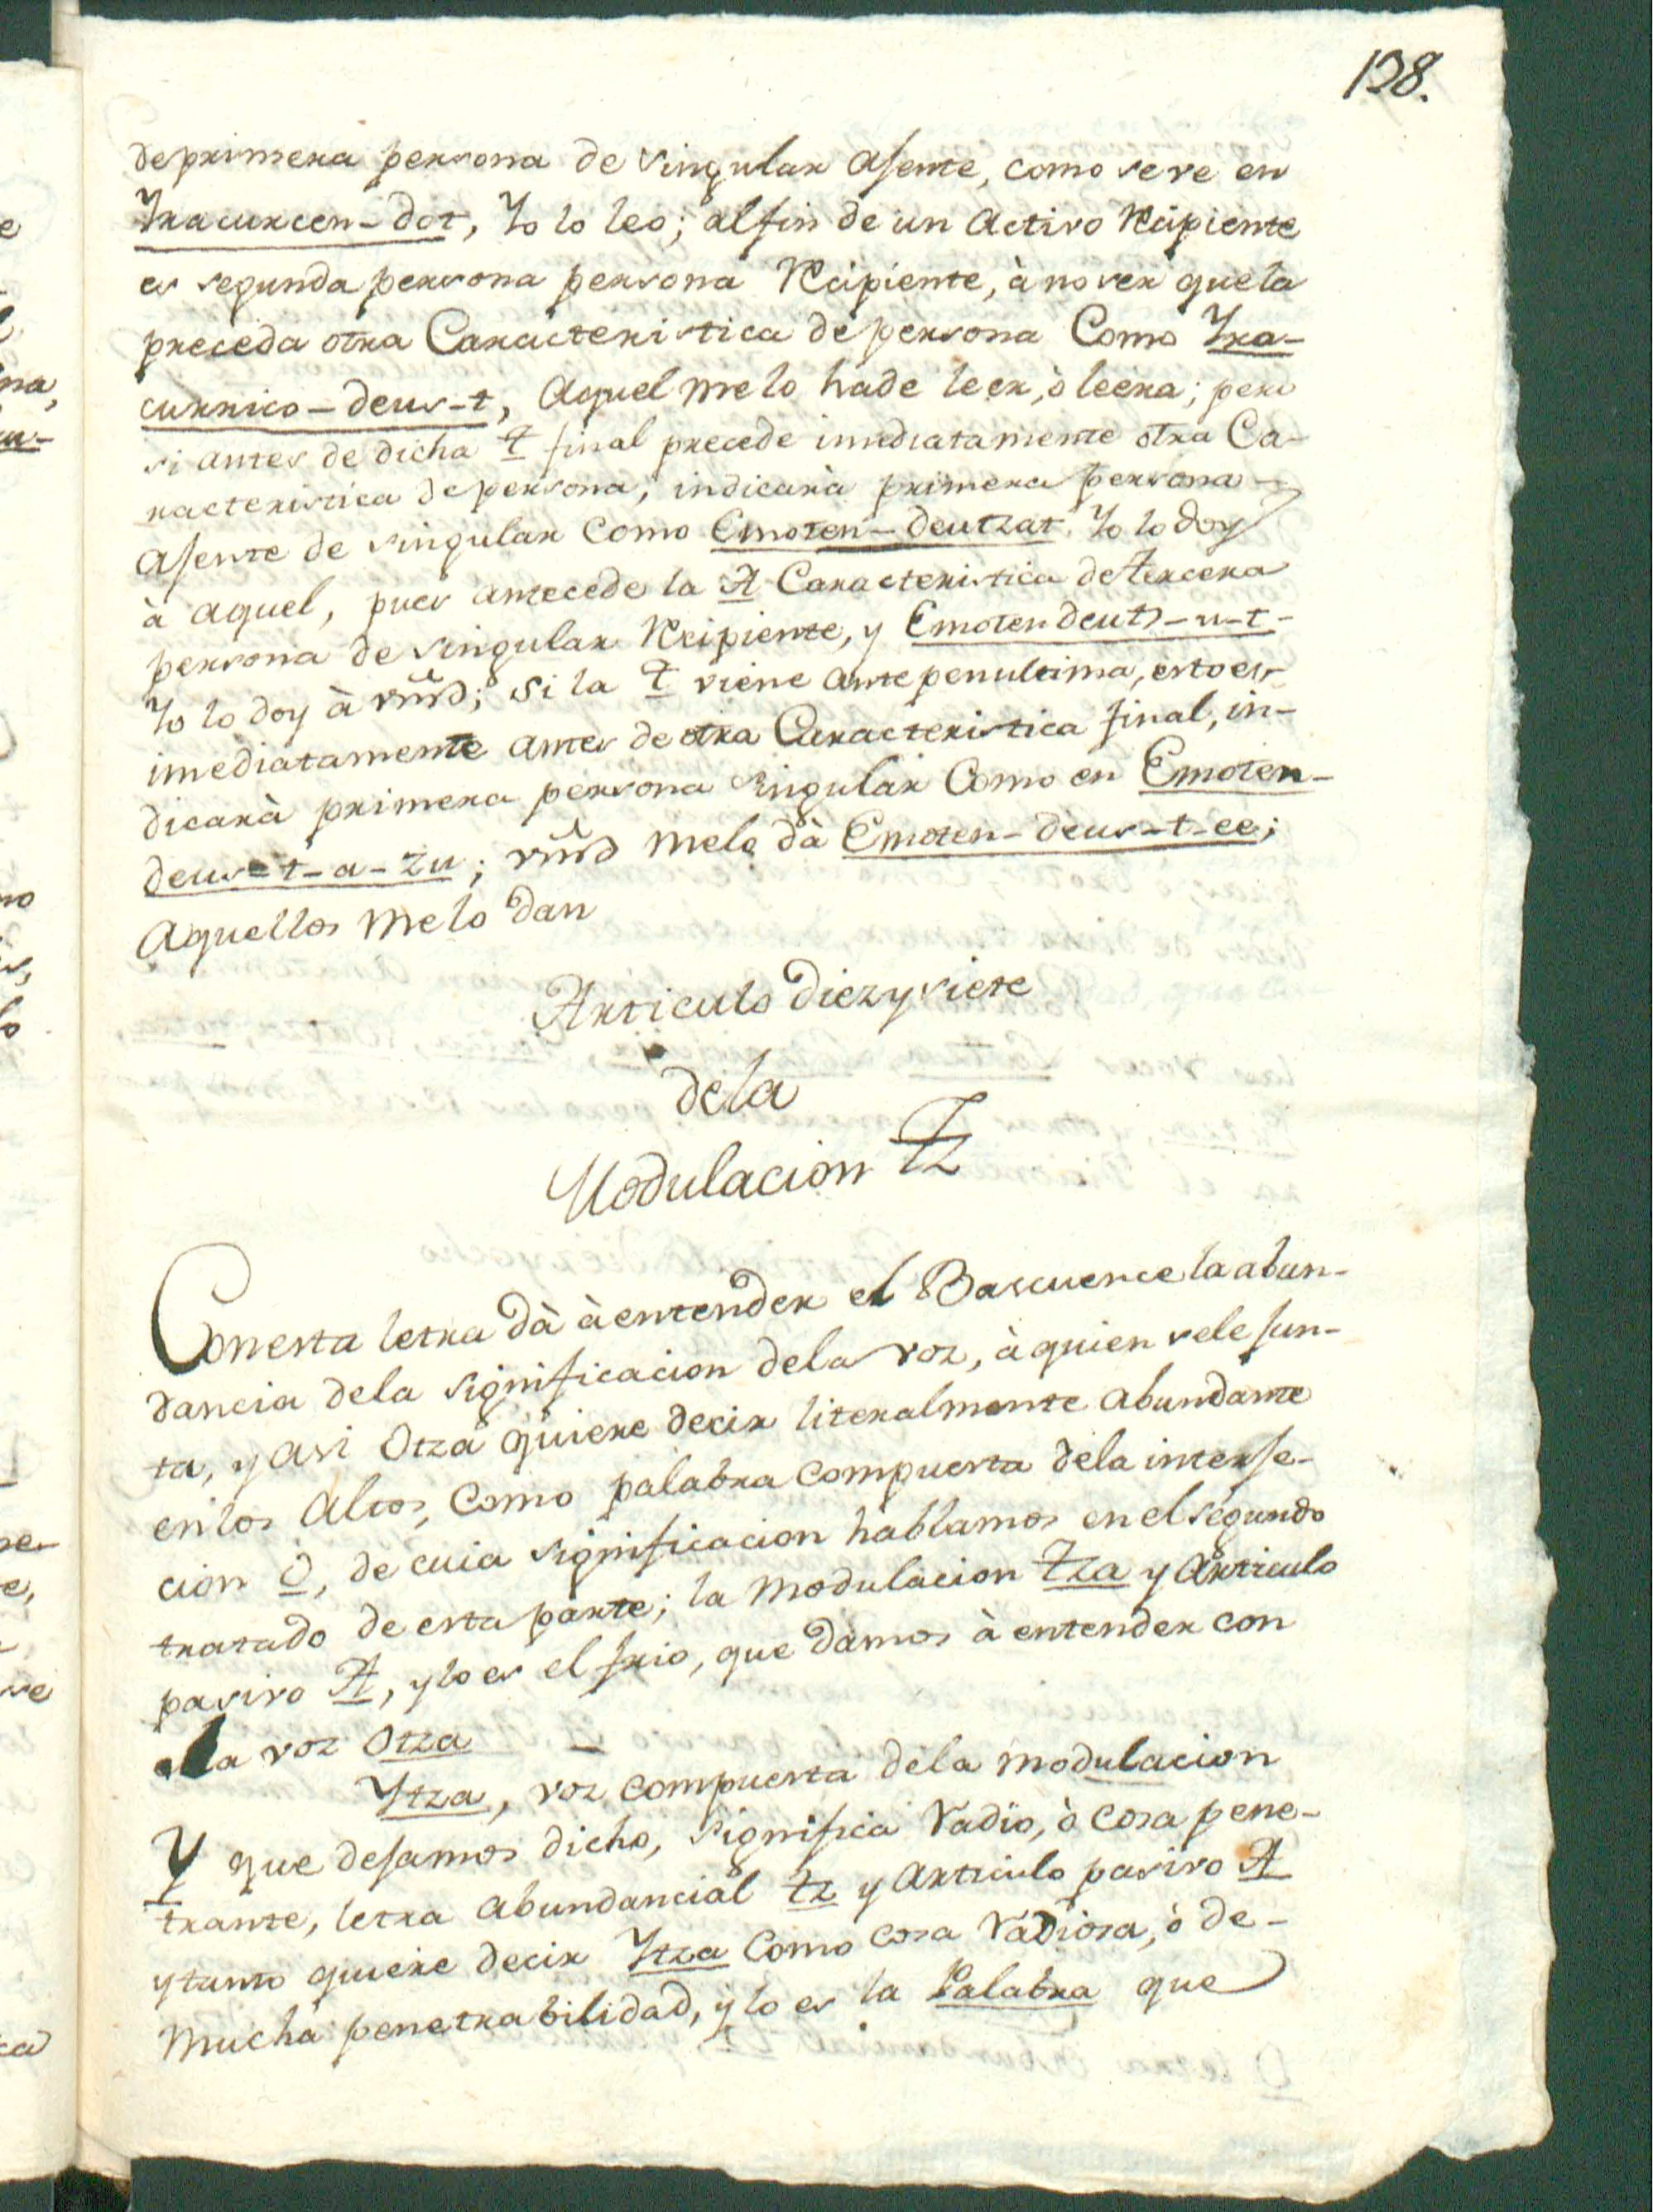 138.
de primera persona de singular Agente, como se ve en
Yracurcen-dot, Yo lo leo; al fin de un Activo Recipiente
es segunda persona persona Recipiente, à no ser que la
preceda otra Caracteristica de persona Como Yra-
currico-deus-t, Aquel me lo hade leer, ò leera; pero
si antes de dicha T final precede imediatamente otra Ca-
racteristica de persona, indicarà primera persona
Agente de singular Como Emoten-deutzat Yo lo doy
à aquel, pues antecede la A Caracteristica de tercera
persona de singular Recipiente, y Emoten deuts-u-t-
Yo lo doy à vmd; Si la T viene antepenultima, esto es,
imediatamente antes de otra Caracteristica final, in-
dicarà primera persona singular Como en Emoten-
deus-t-a-zu; vmd melo dà Emoten-deus-t-ee;
Aquellos melo dan
Articulo diez y siete
dela
Modulacion Tz
Con esta letra dà à entender el Bascuence la abun-
dancia dela significacion dela voz, à quien sele jun-
ta, y asi Otza quiere decir literalmente abundante
en los Altos, Como palabra compuesta dela interje-
cion O, de cuia significacion hablamos en el segundo
tratado de esta parte; la modulacion tza y Articulo
pasivo A, y lo es el frio, que damos à entender con
la voz Otza
Ytza, voz compuesta dela modulacion
Y que dejamos dicho, significa Radio, ò cosa pene-
trante, letra abundancial tz y Articulo pasivo A
y tanto quiere decir Ytza Como cosa Radiosa, ò de-
mucha penetrabilidad, y lo es la Palabra que